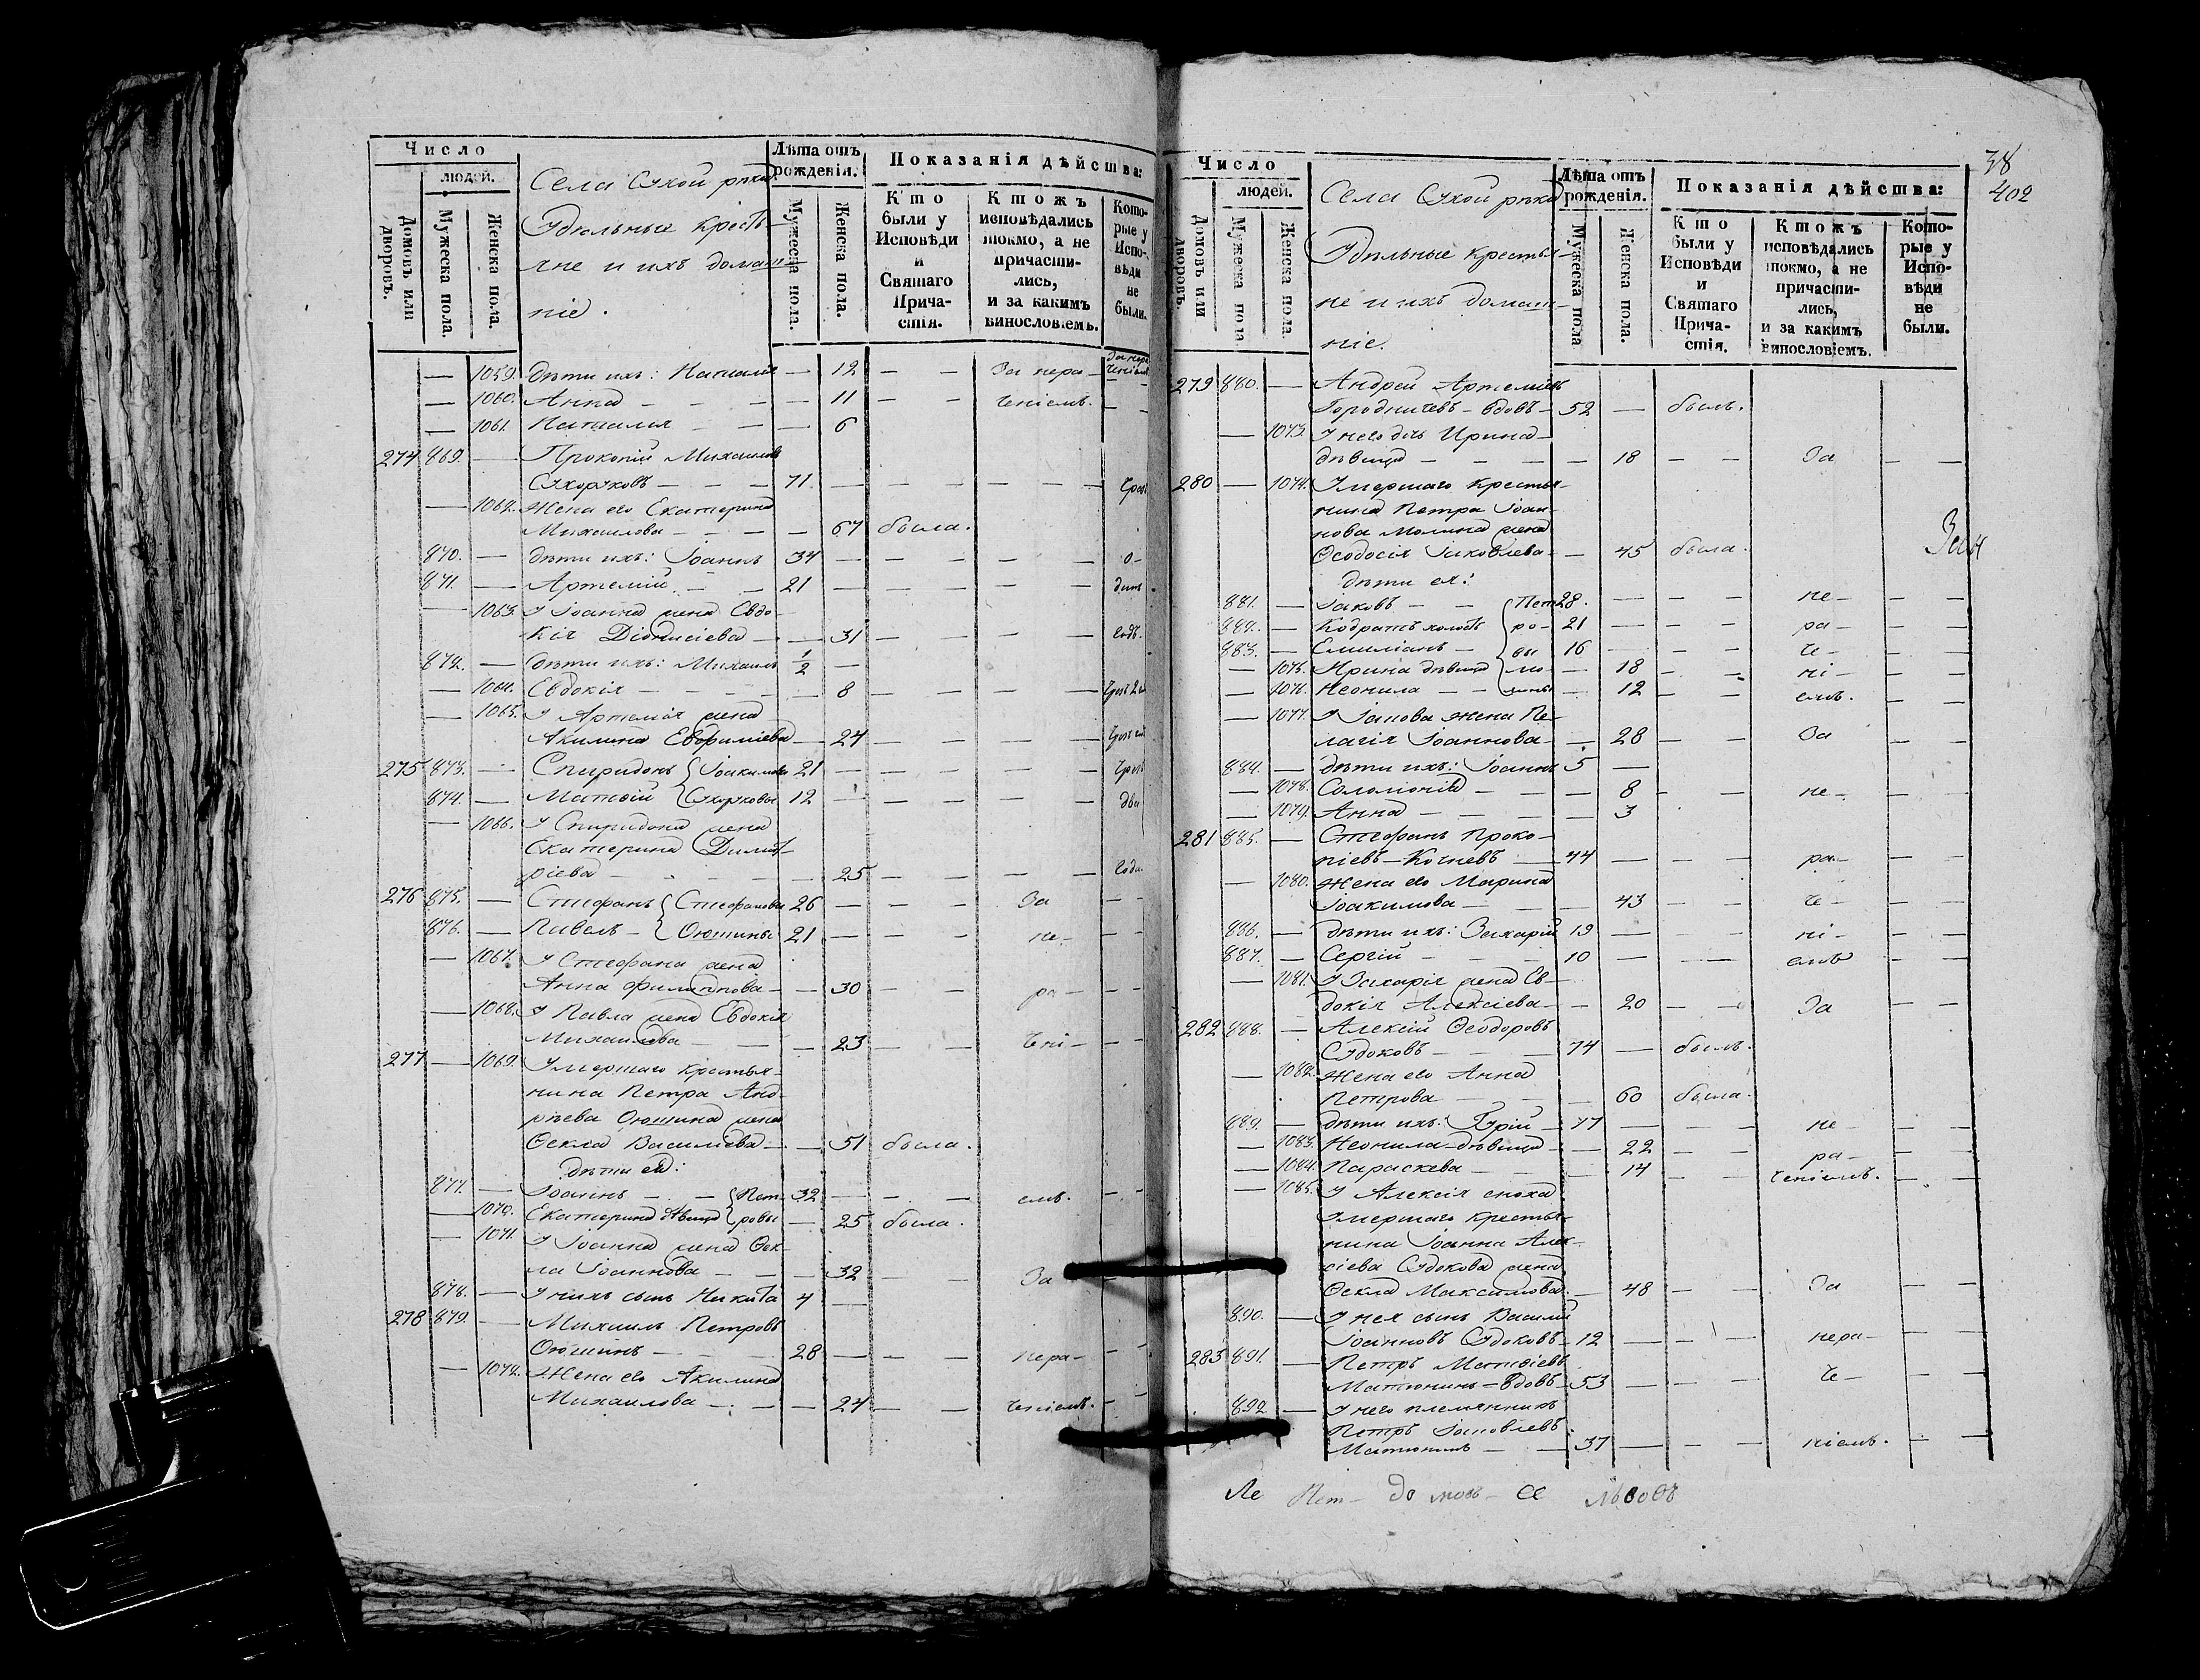 Число
людей.
Домовъ или дворовъ.
Мужеска пола.
Женска пола.
Села Сухой рѣки
Удѣльные кресть-
яне и ихъ домаш-
ніе.
Лѣта отъ рожденія.
Мужеска пола.
Женска пола.
Показанія дѣйства:
Кто были у Исповѣди и Святаго Причастія.
Ктожъ исповѣдались токмо, а не причастились, и за какимъ винословіемъ.
Которые у Исповѣди не были.
— 1059. дѣти ихъ: Наталія — 12 — — За нера-
— 1060. Анна — — — 11 — — ченіемъ. — —
— 1061. Наталія — — — 6
274 869. — Прокопій Михаиловъ
— — — 71. — — — — — —
— 1062. Жена его Екатерина
Михаилова — — — 67 была.
870. — дѣти ихъ: Іоаннъ 34 — — — — — о-
871. — Артемій — — 21 — — — — — динъ
— 1063. У Іоанна жена Евдо-
кія Діонисіева — — 31 — — — — годъ.
872. — дѣти ихъ: Михаилъ 1/2 —
— 1064. Евдокія — — — 8 — — — —
— 1065. У Артемія жена
Акилина Евфиміева — 24 — — — —
275 873. — Спиридонъ { Іоакимовы 21 — — — — —
874. — Матвій { 12 — — — — — два
— 1066. У Спиридона жена
Екатерина Димит-
ріева — — — — 25 — — — — года.
276 875. — Стефанъ { Стефановы 26 — — — За — —
876. — Павелъ — { Оюшины 21 — — — не- — —
— 1067. У Стефана жена
Анна Филиппова — — 30 — — ра — — —
— 1068. У Павла жена Евдокія
Михаилова — — — 23 — — чені- — —
277 — 1069. Умершаго крестья-
нина Петра Анд-
рѣева Оюшина жена
Ѳекла Василіева — — 51 была.
дѣти ея:
877. — Іоаннъ — — { Пет- 32 — — — емъ. — —
— 1070. Екатерина дѣвица { ровы — 25 была.
— 1071. У Іоанна жена Ѳек-
ла Іоаннова — — — 32 — — За
878. — У нихъ сынъ Никита 4 —
278 879. — Михаилъ Петровъ
Оюшинъ — — — 28 — — — нера- — —
— 1072. Жена его Акилина
Михаилова — — — 24 — — ченіемъ. —
38
402
Число
людей.
Домовъ или дворовъ.
Мужеска пола
Женска пола.
Села Сухой рѣки
Удѣльные крестья-
не и ихъ домаш-
ніе.
Лѣта отъ рожденія.
Мужеска пола
Женска пола.
Показанія дѣйства:
Кто были у Исповѣди и Святаго Причастія.
Ктожъ исповѣдались токмо, а не причастились, и за какимъ винословіемъ.
Которые у Исповѣди не были.
279 880. — Андрей Артеміевъ
Городничевъ — вдовъ — 52 — былъ.
— 1073. У него дочь Ирина —
дѣвица — — — — 18 — — За — —
280 — 1074. Умершаго крестья-
нина Петра Іоан-
нова Молина жена
Ѳеодосія Іаковлева — — 45 была.
дѣти ея:
881. — Іаковъ — — { Пет- 28. — — — не — — —
882. — Кодратъ холостъ { ро- 21 — — — ра- — —
883. — Емиліанъ — { вы 16 — — — че- — —
— 1075. Ирина дѣвица { мо — 18 — — ні- — —
— 1076. Неонила — — { лины — 12 — — емъ. — —
— 1077. У Іакова жена Пе-
лагія Іоаннова — — 28 — — За — —
884. — дѣти ихъ: Іоаннъ 5 —
— 1078. Соломонія — — — 8 — — не- — —
— 1079. Анна — — — — 3
281 885. — Стефанъ Проко-
піевъ — Кочневъ — 44 — — — ра- — —
— 1080. Жена его Марина
Іоакимова — — — 43 — — че- — —
886. — дѣти ихъ: Захарій 19 — — — ні- — —
887. — Сергій — — 10 — — — емъ — —
— 1081. У Захарія жена Ев-
докія Алексіева — — 20 — — За — —
282 888. — Алексій Ѳеодоровъ
Судоковъ — — — 74 — былъ.
— 1082. Жена его Анна
Петрова — — — 60 была.
889. — дѣти ихъ: — — — — не — — —
— 1083. Неонила — дѣвица — — 22 — — ра- — —
— 1084. Параскева — — — 14 — — ченіемъ. — —
— 1085. У Алексія сноха
Умершаго крестья-
нина Іоанна Алек-
сіева Судокова жена
Ѳекла Максимова. — 48 — — За — —
890. — У нея сынъ Василій
Іоанновъ Судоковъ — 12 — — — нера- — —
283 891. — Петръ Матвіевъ
Матюнинъ — вдовъ — 53 — — — че- — —
892 — У него племянникъ
Петръ Іаковлевъ
Матюнинъ — — 37 — — — ніемъ. — —